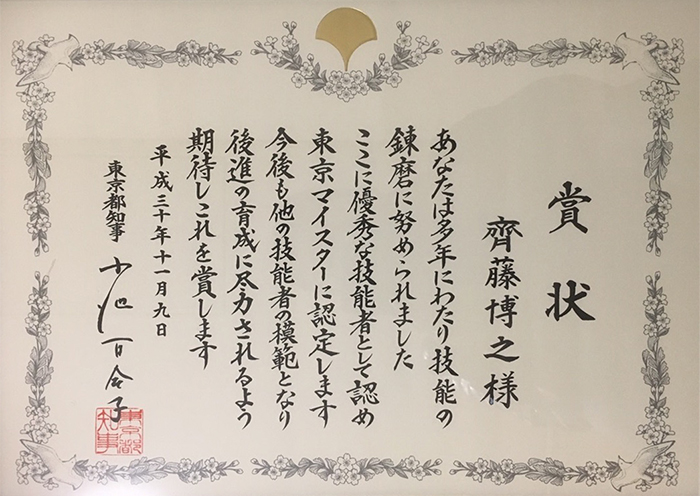 賞状
齊藤博之様
あなたは多年にわたり技能の
錬磨に努められました
ここに優秀な技能者として認め
東京マイスターに認定します
今後も他の技能者の模範となり
後進の育成に尽力されるよう
期待しこれを賞します
平成三十年十一月九日
東京都知事 小池百合子
東京都
知事